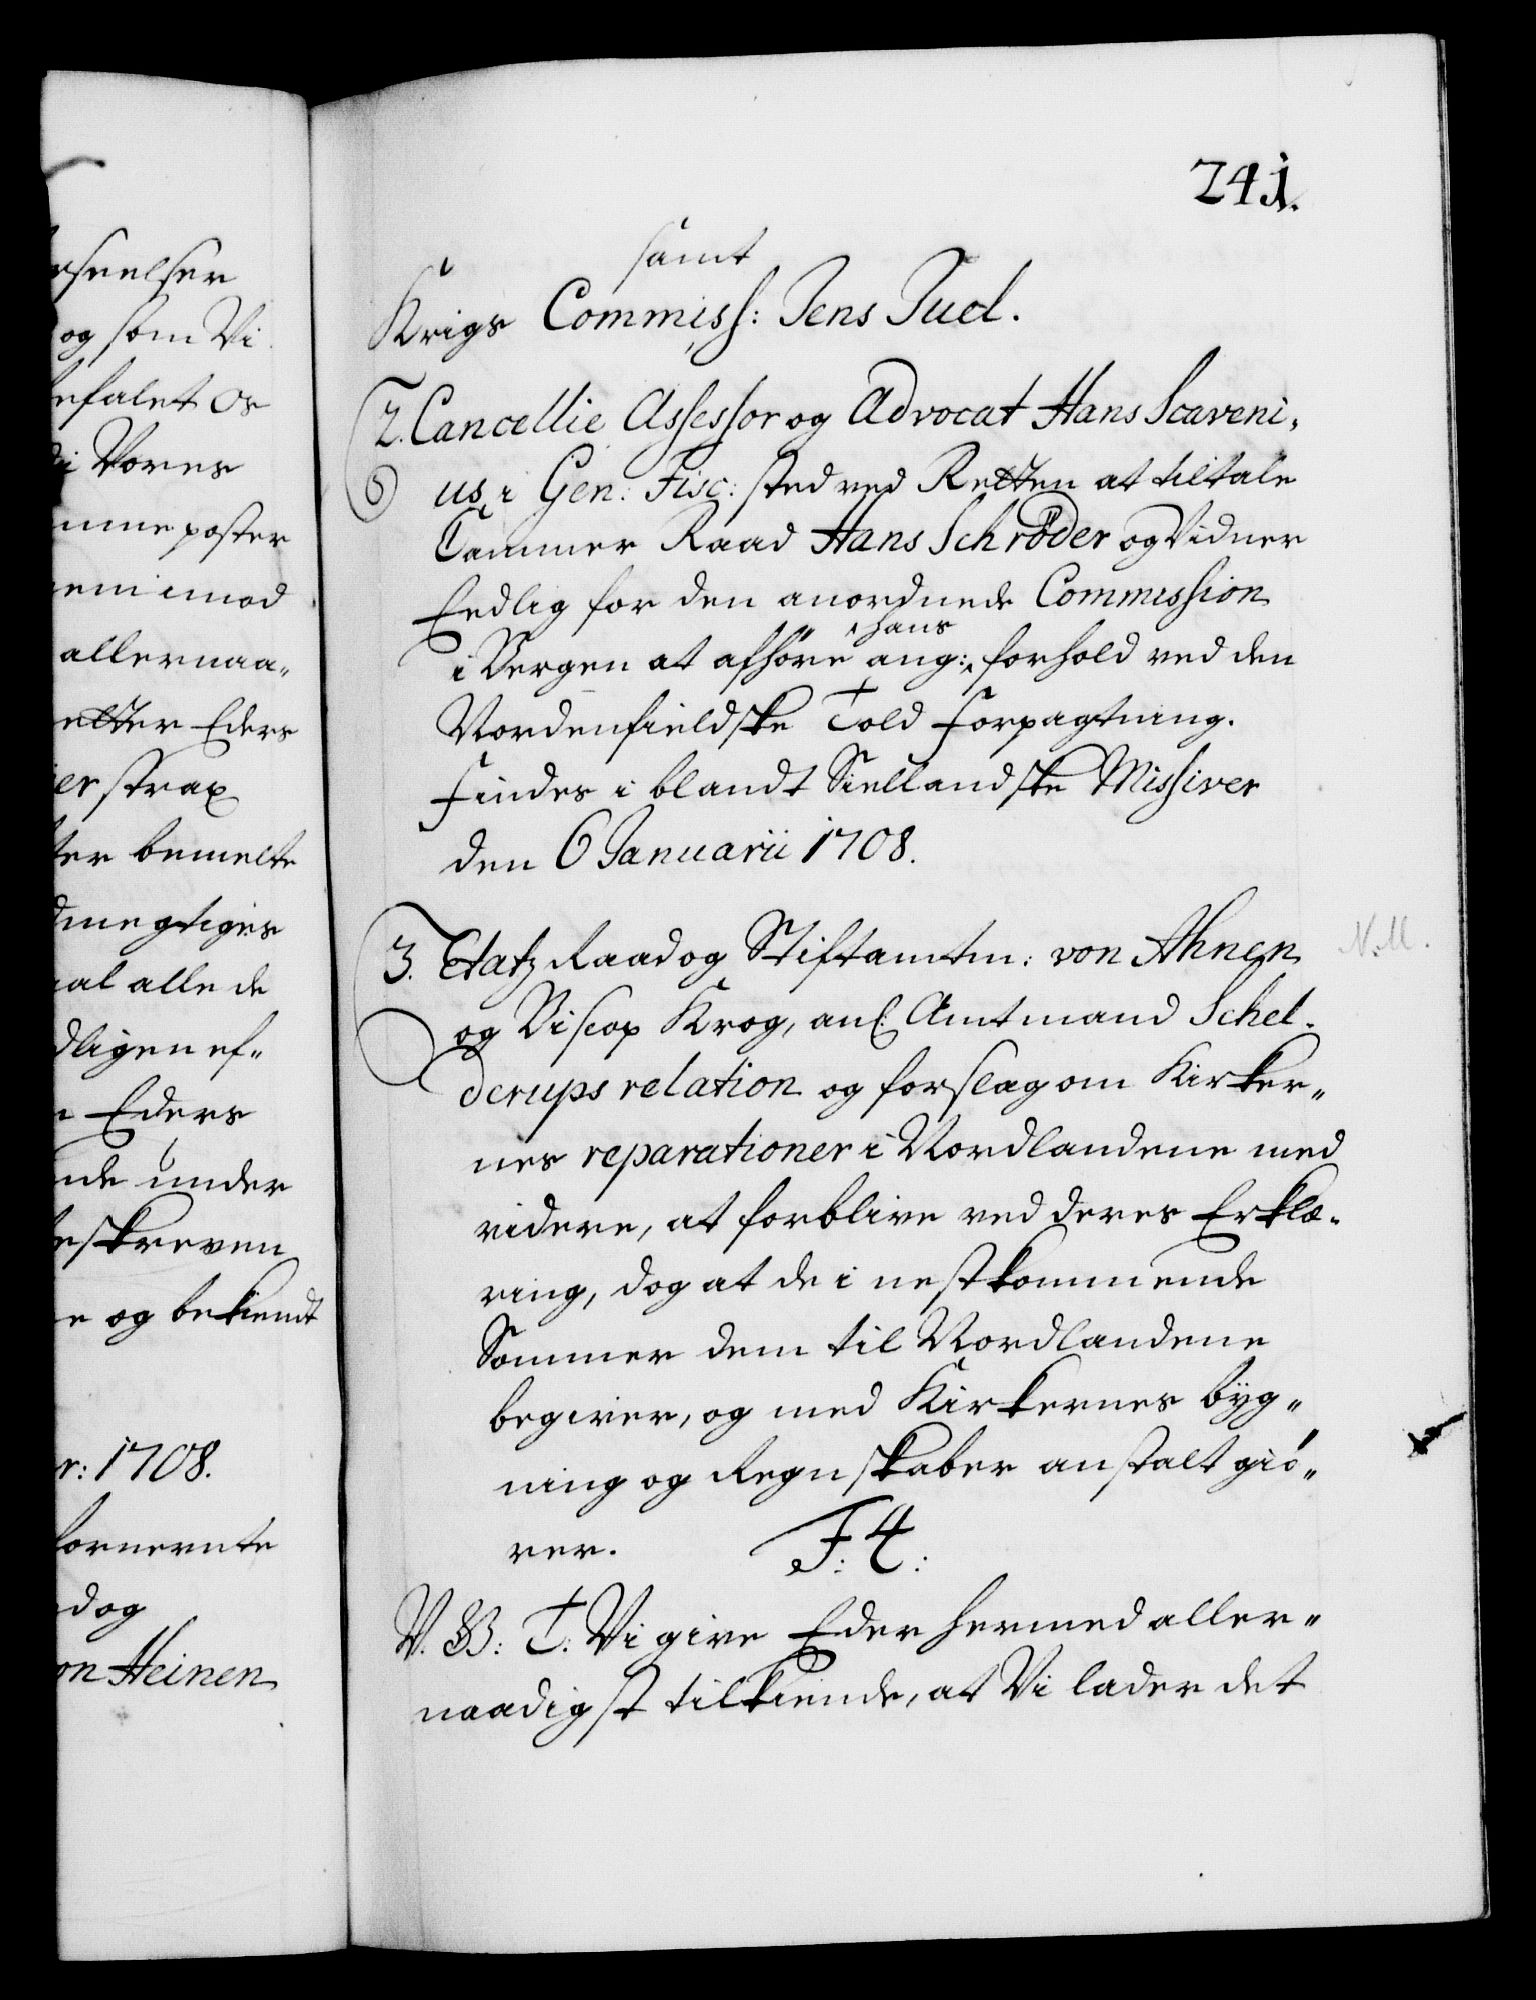 241.
samt
Krigs Commiss: Jens Juel.
2. Cancellie Assessor og Advocat Hans Scaveni-
us, i Gen: Fisc: sted ved Retten at tiltale
Cammer Raad Hans Schröder og Vidner
Eedlig for den anordnede Commission
hans
i Bergen at afhöre ang: forhold ved den
Nordenfieldske Told Forpagtning.
Findes i blandt Siellandske Missiver
den 6 Januarii 1708.
3. Etatz Raad og Stiftamtm: von Ahnen
N.M.
og Biscop Krog, anl: Amtmand Schel-
derups relation og forslag om Kirker-
nes reparationer i Nordlandene med
videre, at forblive ved deres Erklæ-
ring, dog at de i nestkommende
Sommer dem til Nordlandene
begiver, og med Kirkernes byg-
ning og Regnskaber anstalt giö-
rer. F: 4:
V. G: T: Vi give Eder hermed aller-
naadigst tilkiende, at Vi lader det
og som Vi
befalet Os
Vores
poster
imod
allernaa-
efter Eders
strax
bemelte
alle de
Eders
under
beskreven
og bekiendt
1708.
dog
von Heinen